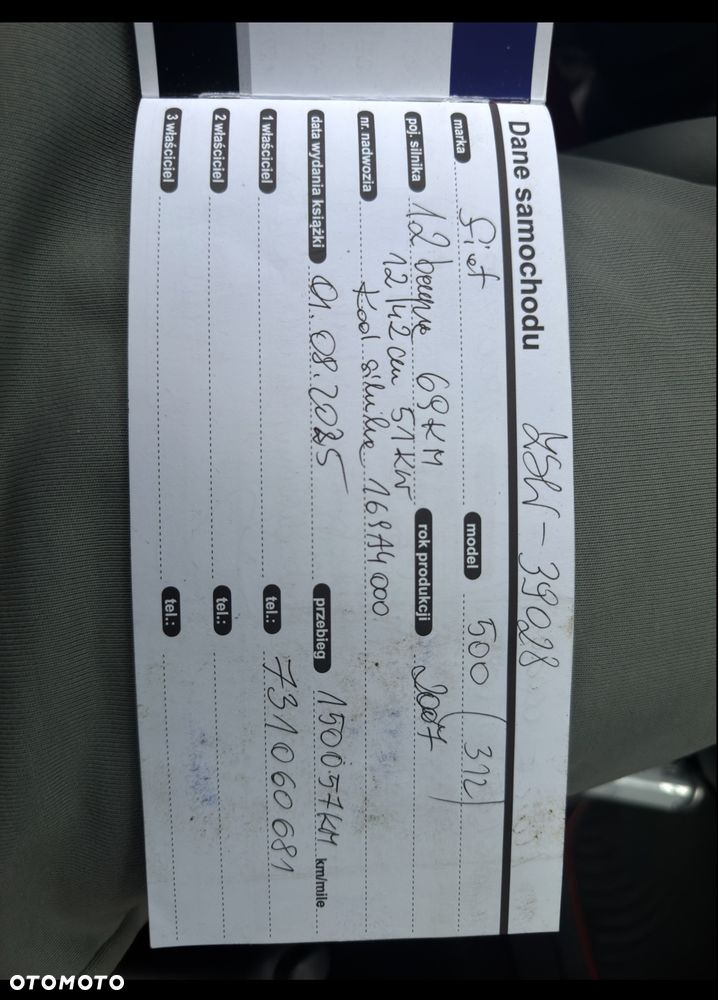 Dane samochodu ZSW-39028
marka fiat model 500 (312)
poj. silnika 1.2 69KM rok produkcji 2007
1242 cm 51kW
nr. nadwozia kod silnika 169A4000
data wydania książki 01.08.2025 przebieg 150057KM km/mile
1 właściciel tel.: 731060681
2 właściciel tel.:
3 właściciel tel.:
OTOMOTO